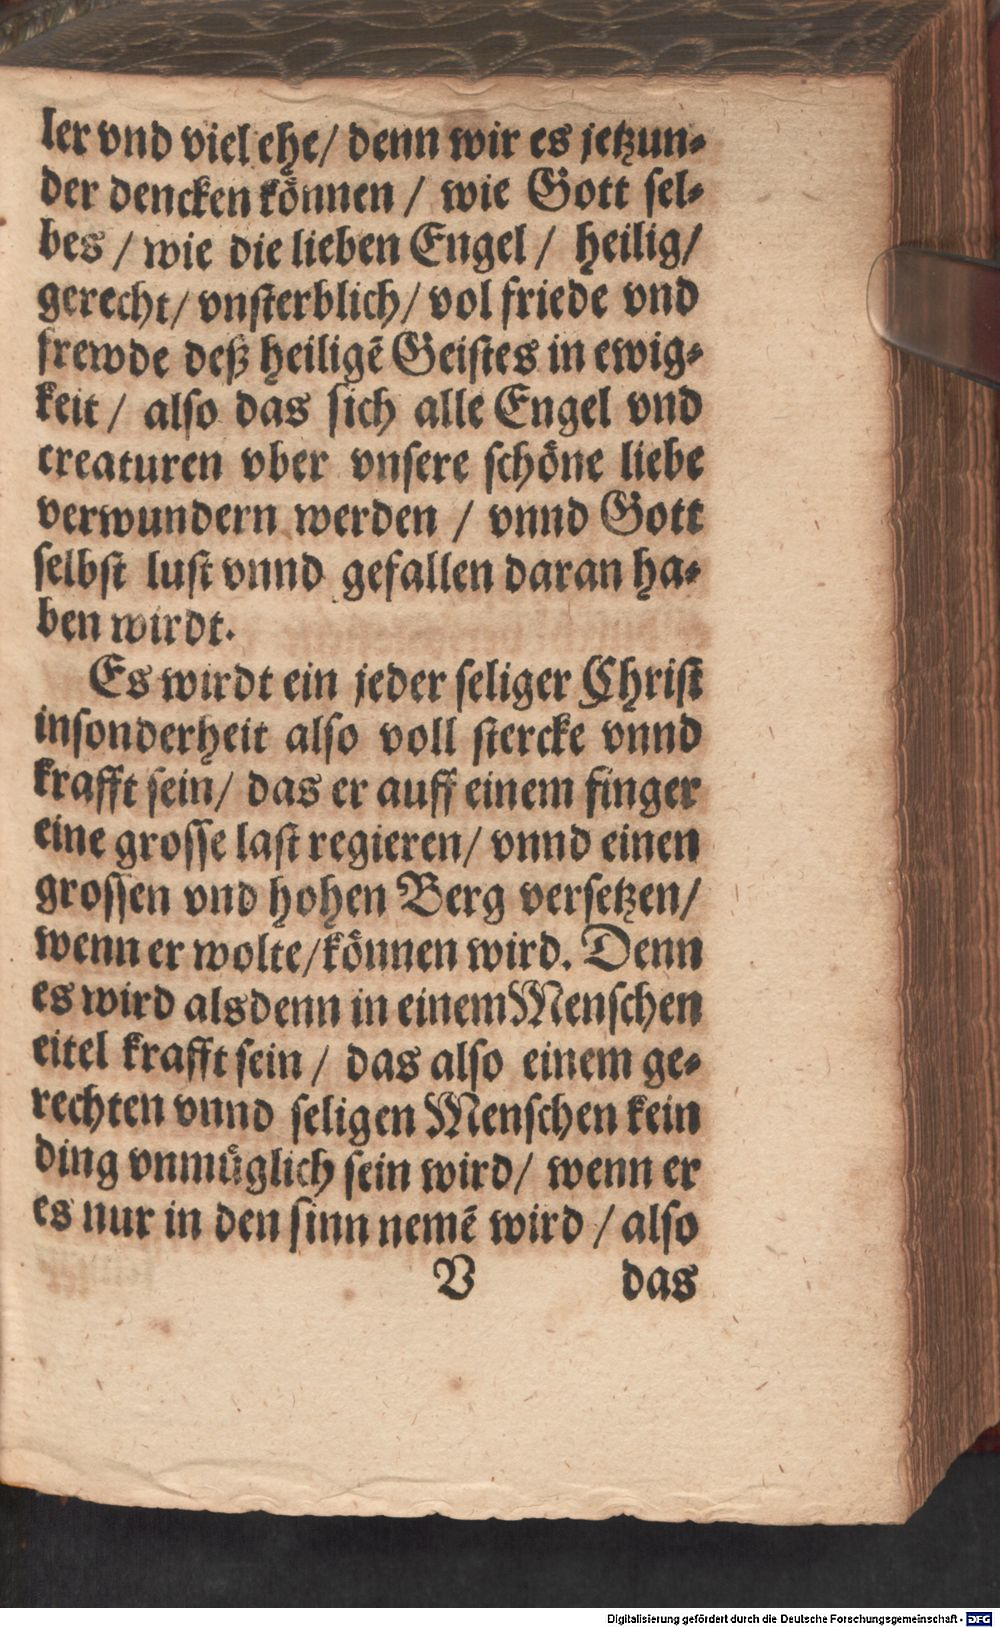 ler vnd viel ehe/ denn wir es jetzun-
der dencken können / wie Gott sel-
bes / wie die lieben Engel / heilig/
gerecht/ vnsterblich/ vol friede vnd
frewde deß heiligē Geistes in ewig-
keit / also das sich alle Engel vnd
creaturen vber vnsere schöne liebe
verwundern werden / vnnd Gott
selbst lust vnnd gefallen daran ha-
ben wirdt.
Es wirdt ein jeder seliger Christ
insonderheit also voll stercke vnnd
krafft sein/ das er auff einem finger
eine grosse last regieren/ vnnd einen
grossen vnd hohen Berg versetzen/
wenn er wolte/können wird. Denn
es wird alsdenn in einem Menschen
eitel krafft sein / das also einem ge-
rechten vnnd seligen Menschen kein
ding vnmüglich sein wird/ wenn er
es nur in den sinn nemē wird / also
V das
Digitalisierung gefördert durch die Deutsche Forschungsgemeinschaft - DFG